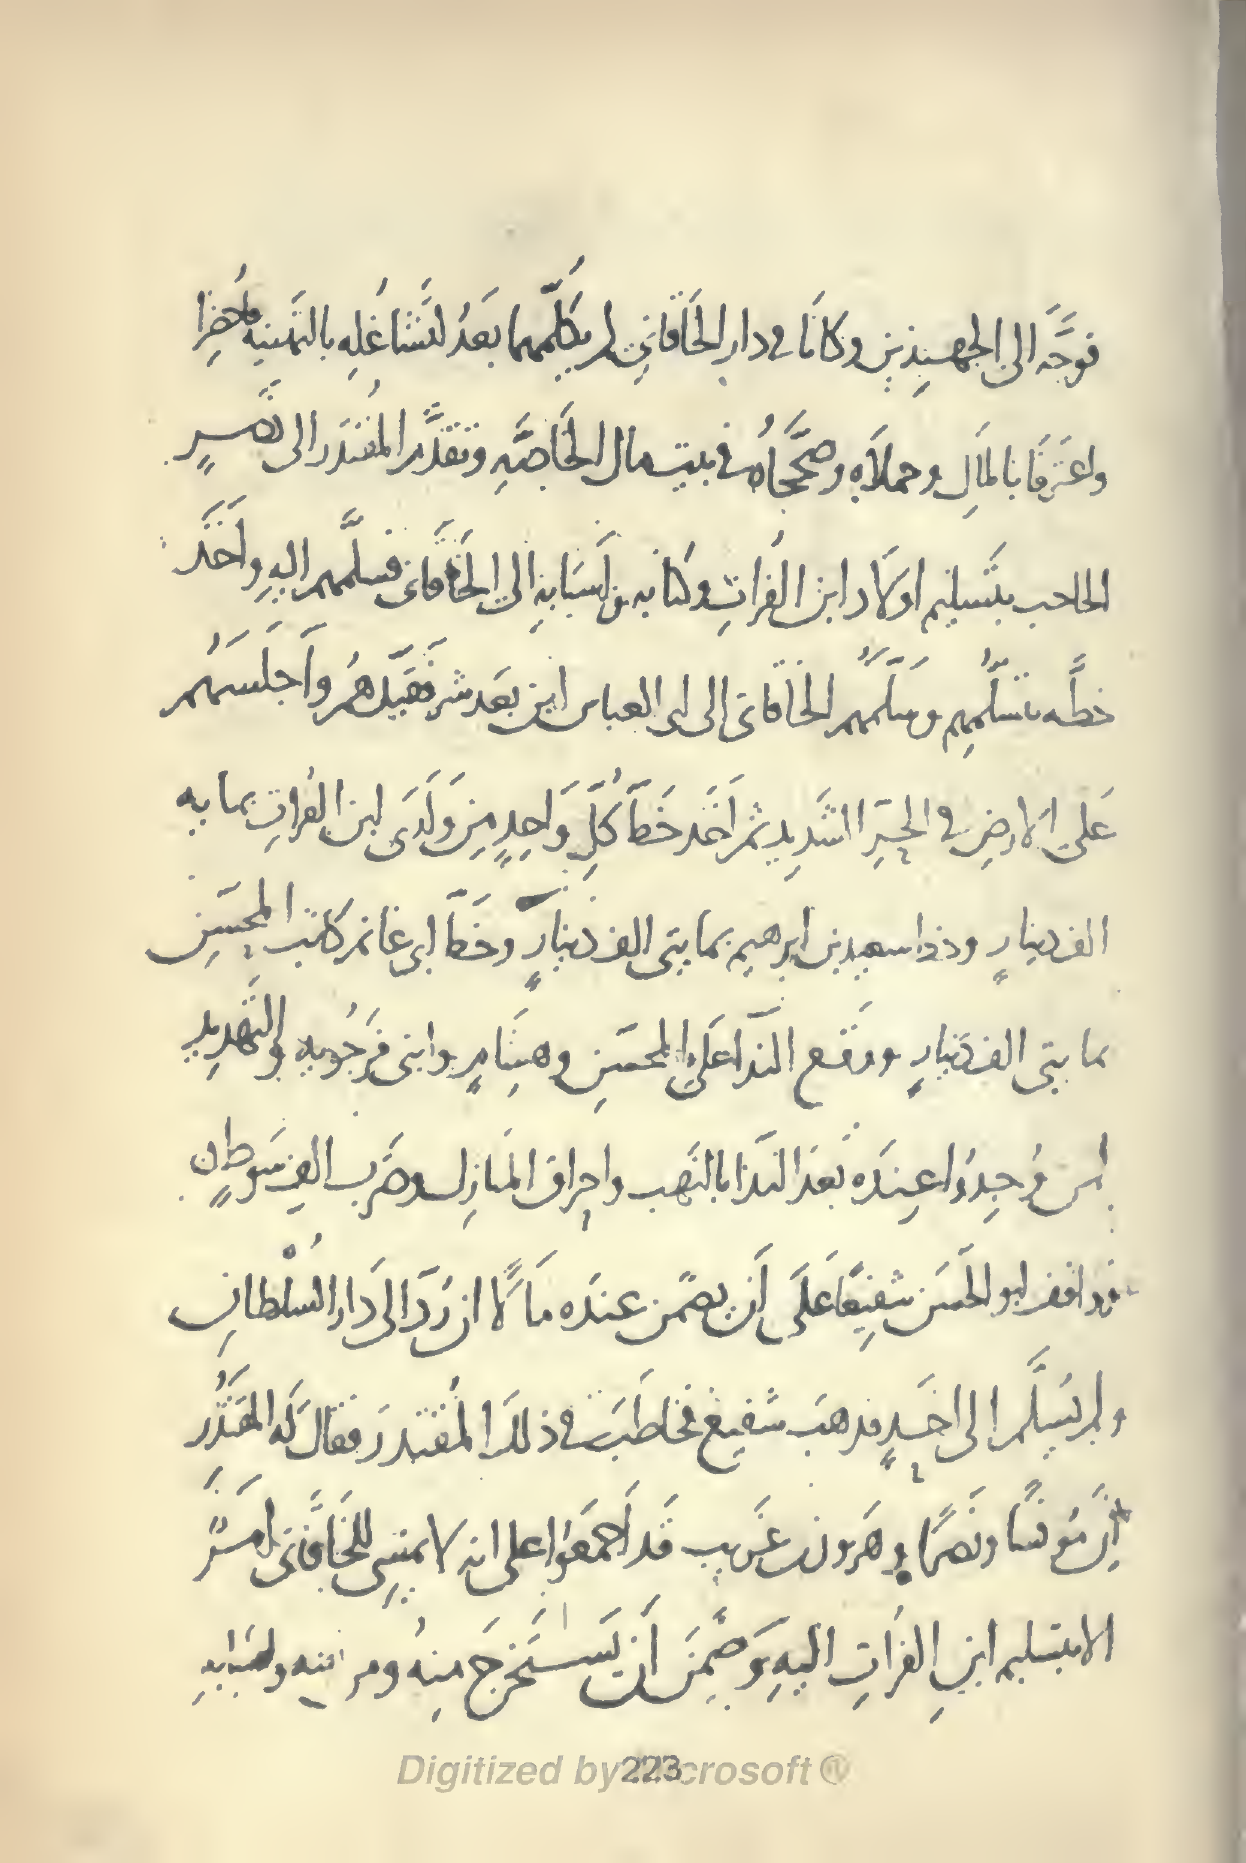 فوَجَّه الى الجهبِذين وكانَا في دار الخَاقاني لم يكلِّمهما بعَدُ لتَشَاغُلِه بالتهنيه فاُحضِرا
واعتَرفَا بالمَالِ وحملاَه وصحَّحَاهُ في بيت مال الخَاصَّهِ وتقدَّم المُقتَدَر الى نصرٍ
الحاحب بتَسليم اولاَد ابن الفُراتِ وكتابه واَسبَابهِ الى الخَاقاني فسلَّمهم اليهِ واَخَذَ
خطَّه بتسلُّمِهم وسَلَّمهُم الخاقانى الى ابى العباس ابن بعَد شر فقَيَّدهُم واَجلسَهُم
عَلى الارضِ في الحَرِّ الشَديد ثم اَخَذ خَطَّ كُلِّ وَاحِدٍ مِن وَلَدَى ابن الفُراتِ بمايه
الف دينارٍ وخط سعيد بن ابرهيم بمايتى الف دينارٍ وخَطّ ابى غانم كاتب المحسّن
بمايتى الف دينَارٍ ووقع الندَا عَلى المحسَن وهشَامٍ وابنى فرَجُويه والتَهدِيد
لمن وُجِدُوا عِندَه بَعدَ النَدا بالنَهب واحراق المنَازِل وضَرب الف سَوطٍ
فوافَق ابو الحَسَن شفيعًا عَلَى اَن يضمَن عنده مَالًا ان رُدَّ الَى دَار السُلْطَانِ
ولم يُسَلَّم الى اَحَدٍ فدهبَ شَفيع فخاطَبَ في ذلكَ المُقتدر فقال لَه المقتَدر
اِنَّ مُونسًا ونَصرًا وهَرون بن غَريب قَد اَجمعَوُا على انه لا يمشِى للخَاقَانى امرٌ
الا بتسليم ابنِ الفُراتِ اليهِ وَضَمِنَ اَن يَستَخرجَ مِنهُ ومن ابنه واَسبَابهِ
Digitized by Microsoft ®
223